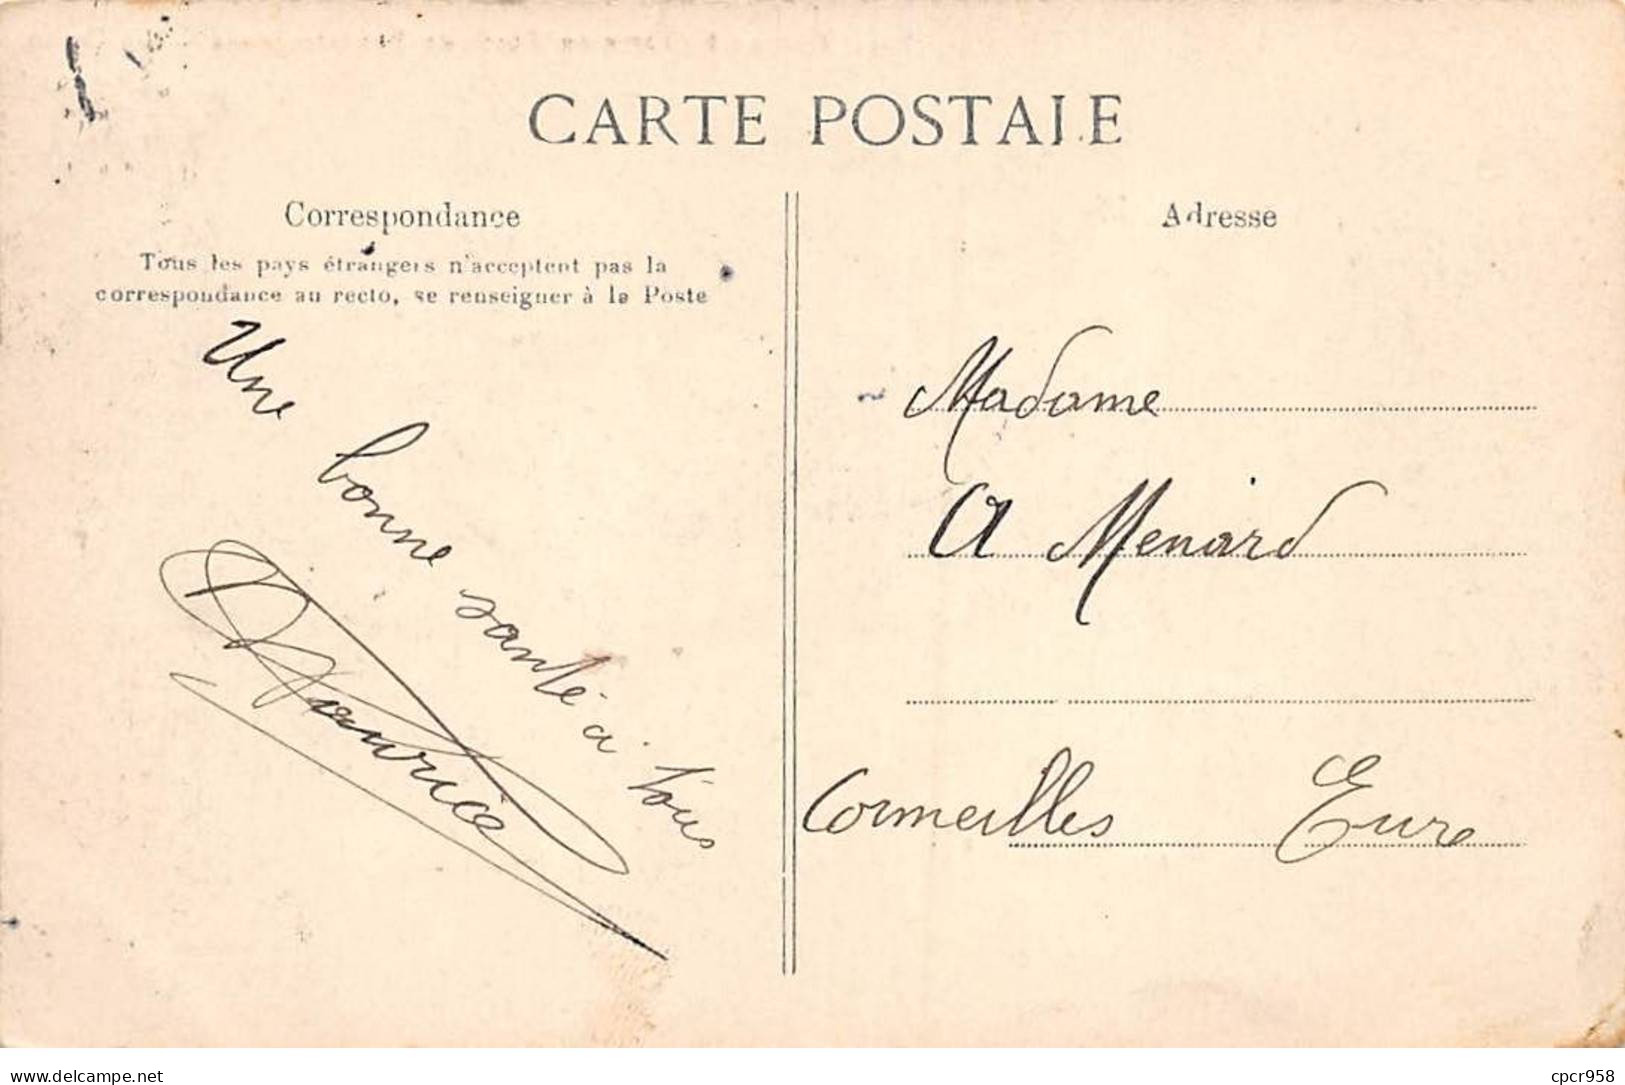 CARTE POSTALE
Correspondance
Tous les pays étrangers n'acceptent pas la
correspondance au recto, se renseigner à la Poste
Une bonne santé à tous
Maurice
Adresse
Madame
A Menard
Cormeilles Eure
www.delcampe.net
cpcr958